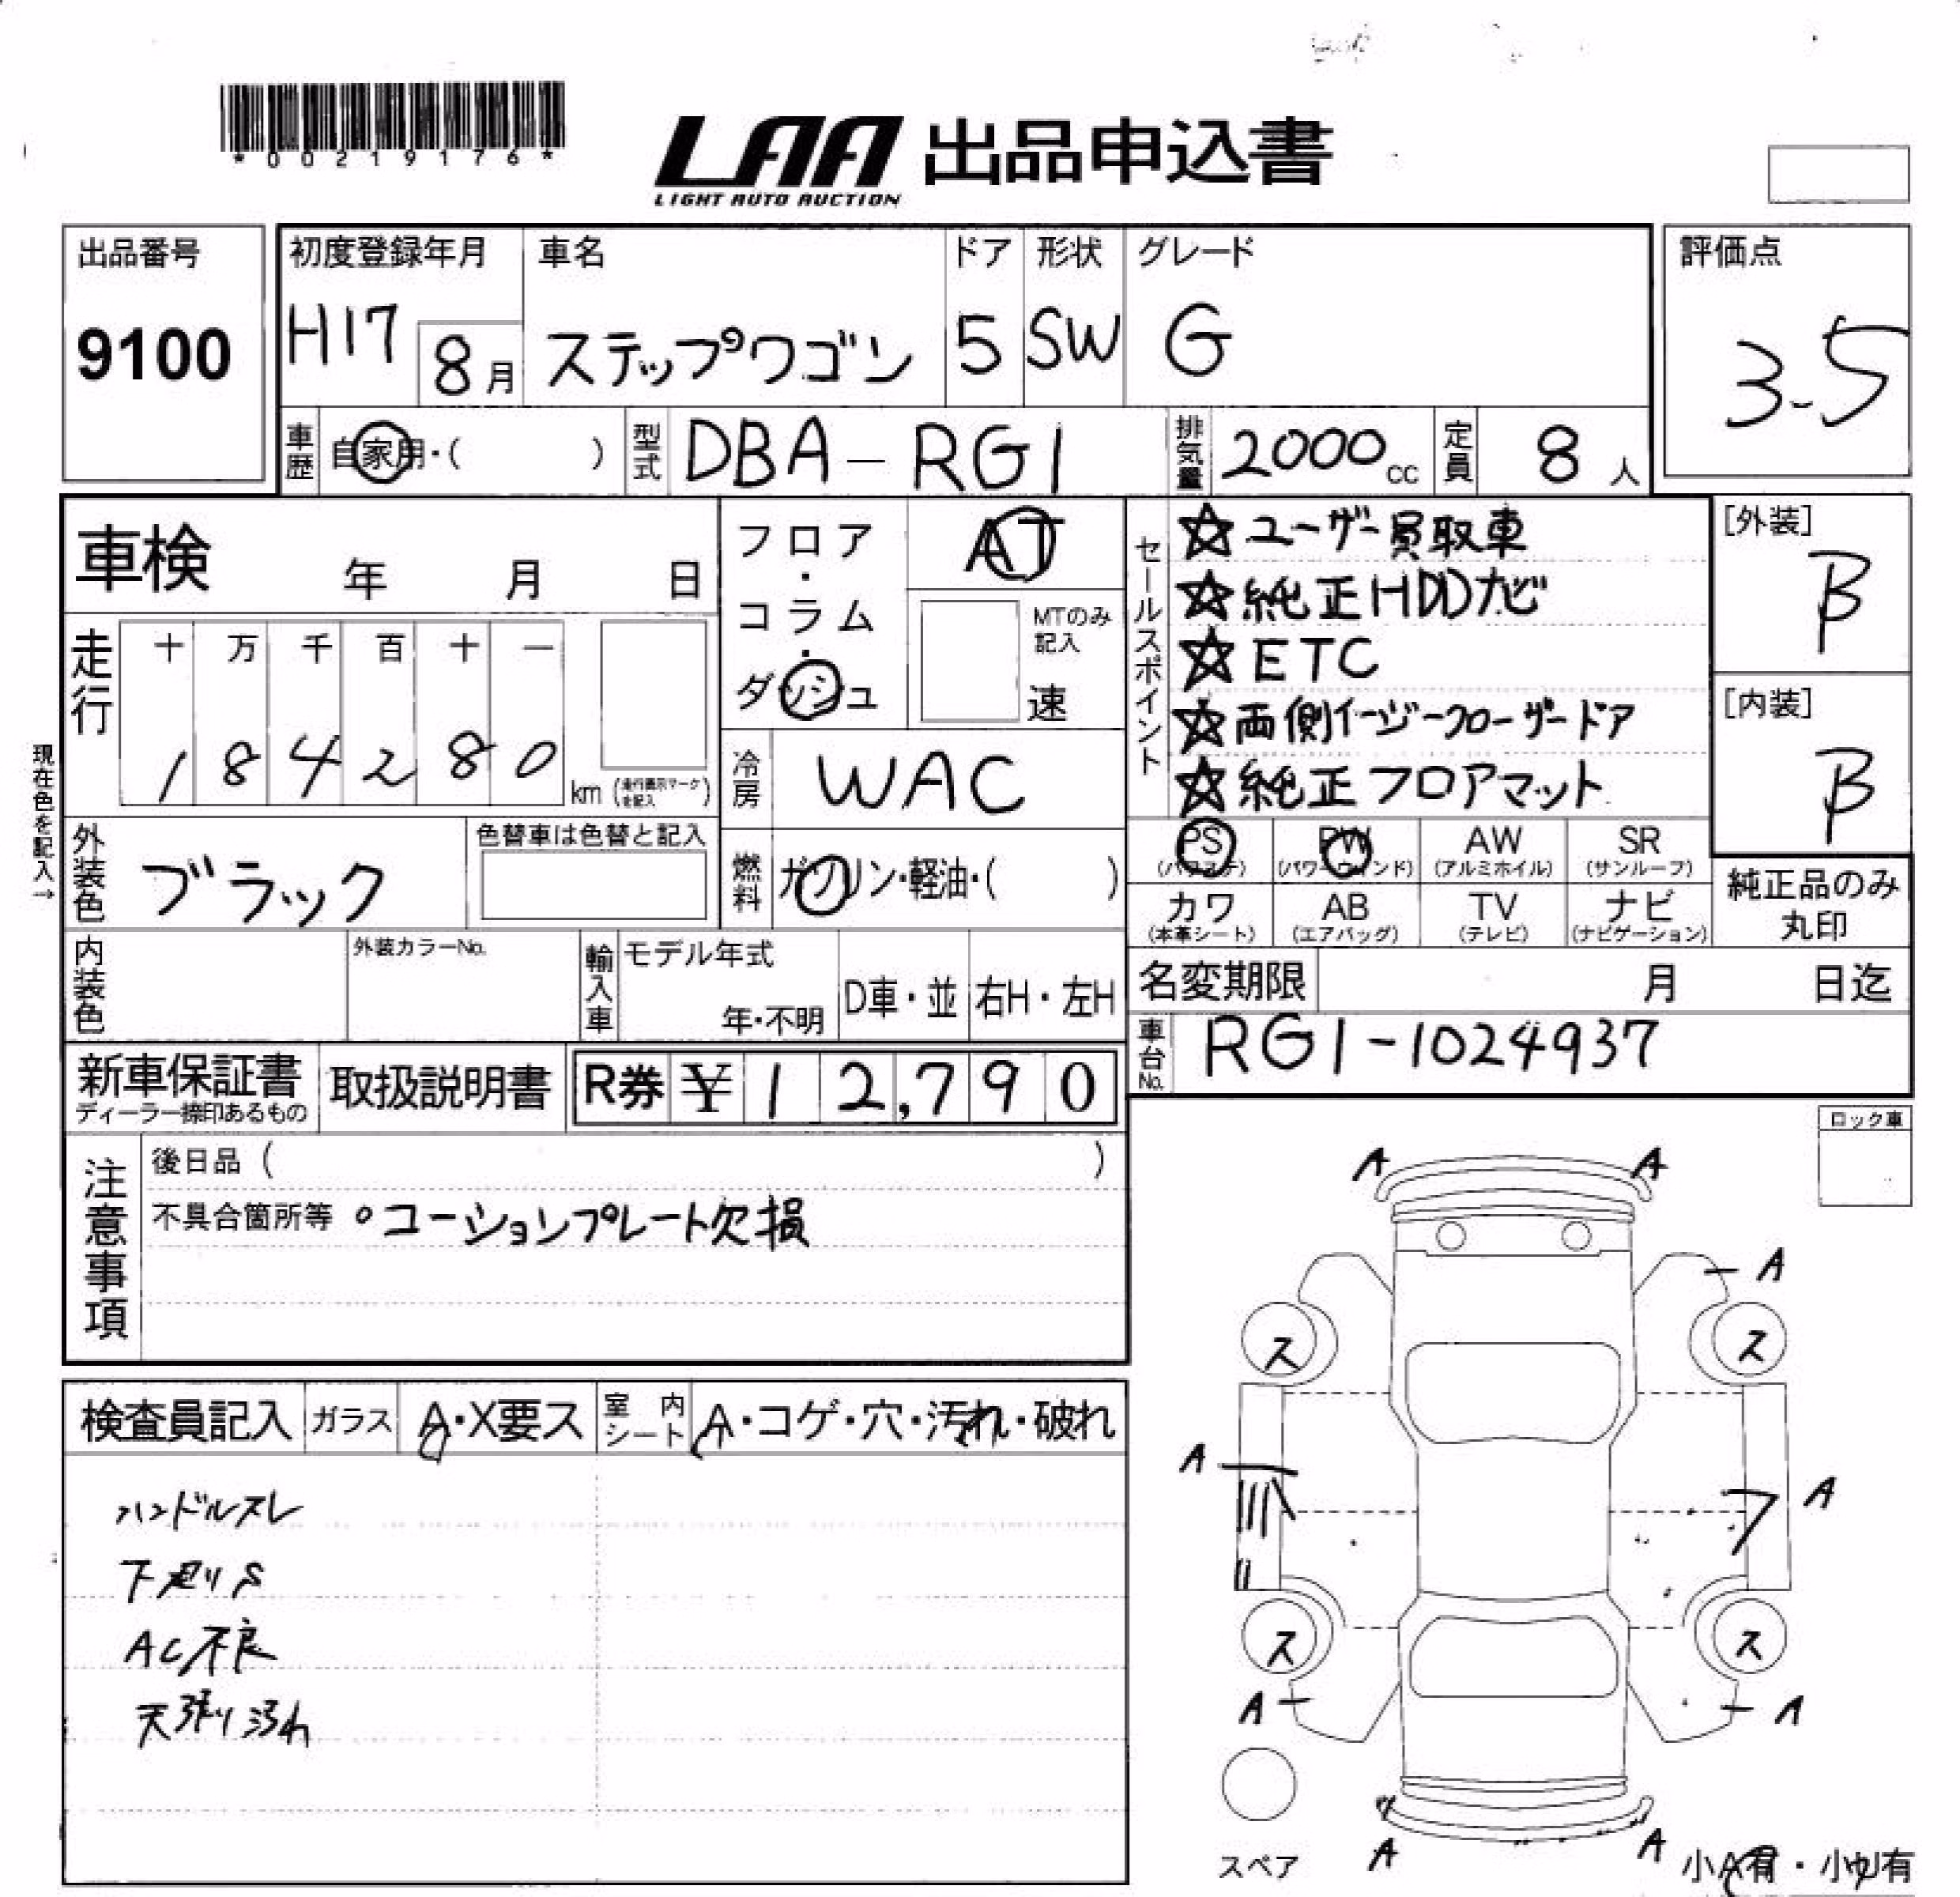 *00219176*
LAA 出品申込書
LIGHT AUTO AUCTION
出品番号
9100
初度登録年月
H17 8月
車名
ステップワゴン
ドア
5
形状
SW
グレード
G
評価点
3.5
車歴 自家用・( )
型式 DBA-RG1
排気量 2000cc
定員 8人
車検 年 月 日
フロア・コラム・ダッシュ
AT
MTのみ記入
速
セールスポイント
☆ユーザー買取車
☆純正HDDナビ
☆ETC
☆両側イージークローザードア
☆純正フロアマット
[外装]
B
[内装]
B
走行
十 万 千 百 十 一
1 8 4 2 8 0 km (走行表示マークを記入)
現在色を記入→
冷房 WAC
外装色 ブラック
色替車は色替と記入
燃料 ガソリン・軽油・( )
PS (パワステ)
PW (パワーウィンド)
AW (アルミホイル)
SR (サンルーフ)
カワ (本革シート)
AB (エアバッグ)
TV (テレビ)
ナビ (ナビゲーション)
純正品のみ丸印
内装色
外装カラーNo.
輸入車
モデル年式
年・不明
D車・並
右H・左H
名変期限 月 日迄
車台No. RG1-1024937
新車保証書
ディーラー捺印あるもの
取扱説明書
R券 ¥12,790
注意事項
後日品( )
不具合箇所等 ○コーションプレート欠損
ロック車
検査員記入
ガラス A・X要ス
室内シート A・コゲ・穴・汚れ・破れ
ハンドルスレ
下廻りS
AC不良
天張り汚れ
A A
A
ス ス
A
A
ス ス
A A
スペア
A A
小A有・小U有